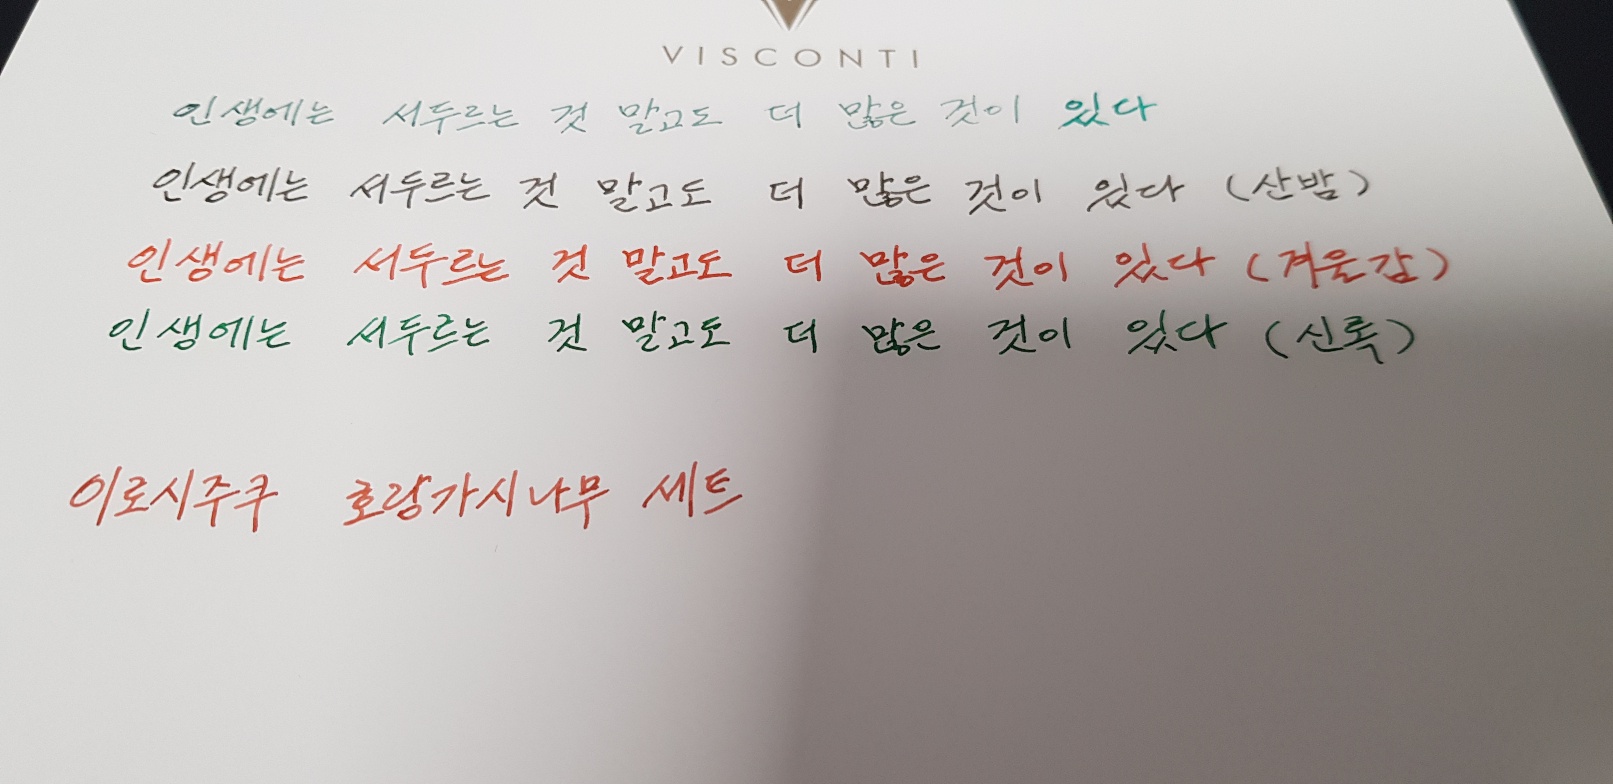 VISCONTI
인생에는 서두르는 것 말고도 더 많은 것이 있다
인생에는 서두르는 것 말고도 더 많은 것이 있다 (산밤)
인생에는 서두르는 것 말고도 더 많은 것이 있다 (겨울감)
인생에는 서두르는 것 말고도 더 많은 것이 있다 (신록)
이로시주쿠 호랑가시나무 세트